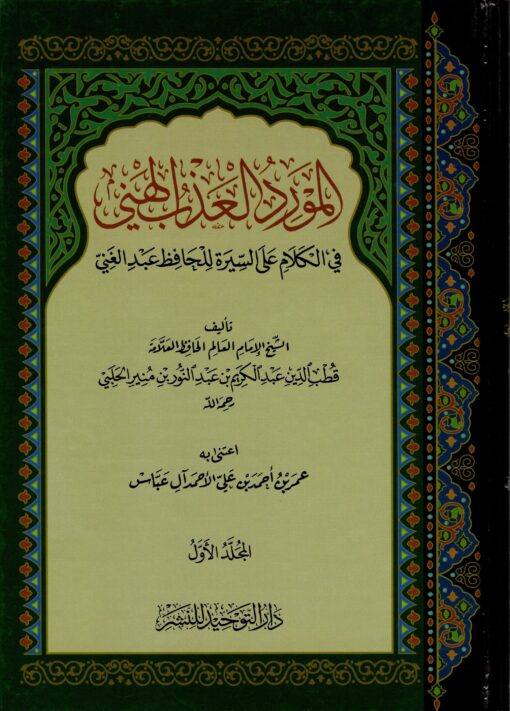 المَوْرِدُ العَذْبُ الهَنِيّ
فِي الكَلَامِ عَلَى السِّيرَةِ لِلْحَافِظِ عَبْدِ الغَنِيّ
تأليف
الشيخ الإمام العالم الحافظ العلامة
قُطْبِ الدِّينِ عَبْدِ الكَرِيمِ بْنِ عَبْدِ النُّورِ بْنِ مُنِيرٍ الحَلَبِيّ
رحمه الله
اعتنى به
عُمَر بْنُ أَحْمَدَ بْنِ عَلِيّ الأَحْمَد آل عَبَّاسْ
المُجَلَّدُ الأَوَّلُ
دَارُ التَّوْحِيدِ لِلنَّشْرِ